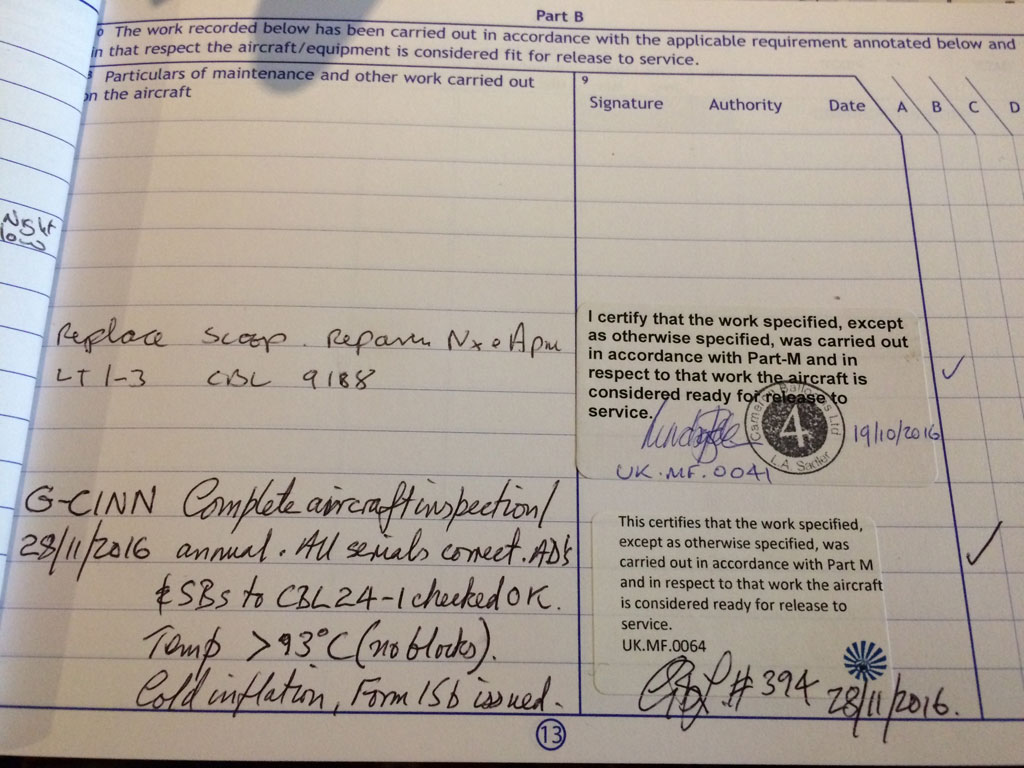 Part B
The work recorded below has been carried out in accordance with the applicable requirement annotated below and
in that respect the aircraft/equipment is considered fit for release to service.
Particulars of maintenance and other work carried out
on the aircraft
9
Signature Authority Date A B C D
Night
Replace Scoop.
LT 1-3 CBL 9188
I certify that the work specified, except
as otherwise specified, was carried out
in accordance with Part-M and in
respect to that work the aircraft is
considered ready for release to
service.
Cameron Balloons Ltd
4
L.A. Sadler
19/10/2016
UK.MF.0041
G-CINN Complete aircraft inspection/
28/11/2016 annual. All serials correct. ADs
& SBs to CBL24-1 checked OK.
Temp >93°C (no blocks).
Cold inflation, Form 15b issued.
This certifies that the work specified,
except as otherwise specified, was
carried out in accordance with Part M
and in respect to that work the aircraft
is considered ready for release to
service.
UK.MF.0064
#394 28/11/2016.
13